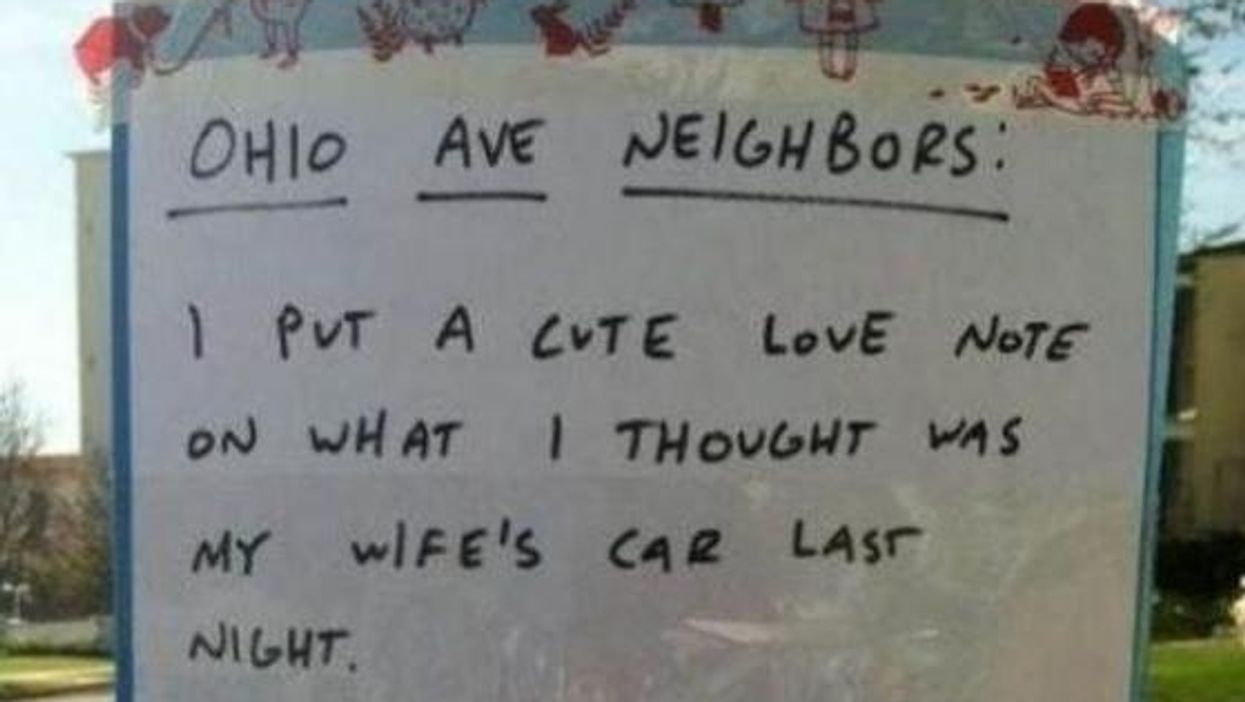 OHIO AVE NEIGHBORS:
I PUT A CUTE LOVE NOTE
ON WHAT I THOUGHT WAS
MY WIFE'S CAR LAST
NIGHT.